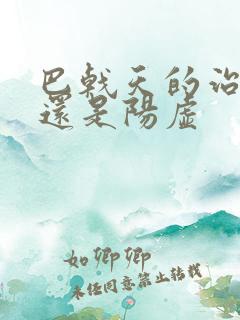 巴戟天的治
還是陽虛
如卿卿
未经同意禁止转载